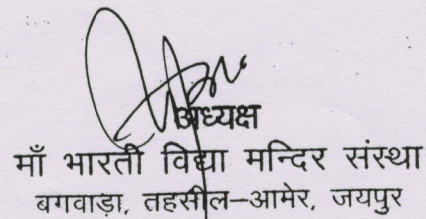 अध्यक्ष
माँ भारती विद्या मन्दिर संस्था
बगवाड़ा, तहसील-आमेर, जयपुर